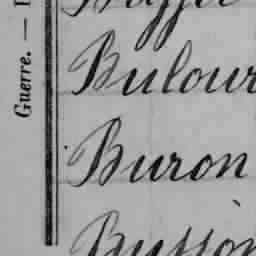 Guerre. —
Bulour
Buron
Busson